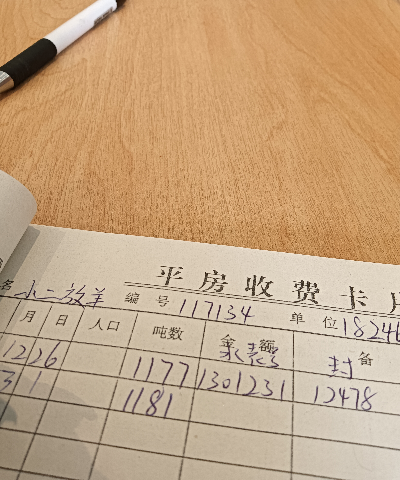 平房收费卡片
名 小二放羊 编号 117134 单位 18246
月 日 人口 吨数 金额 水表号 备 封
12 26 1177 1301231 12478
3 1 1181